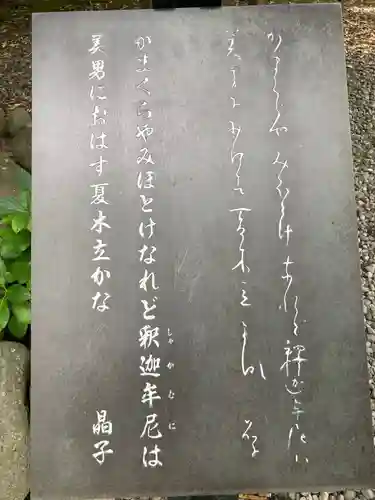 かまくらやみほとけなれど釈迦牟尼は
美男におはす夏木立かな
晶子
かまくらやみほとけなれど釈迦牟尼は
しゃかむに
美男におはす夏木立かな
晶子